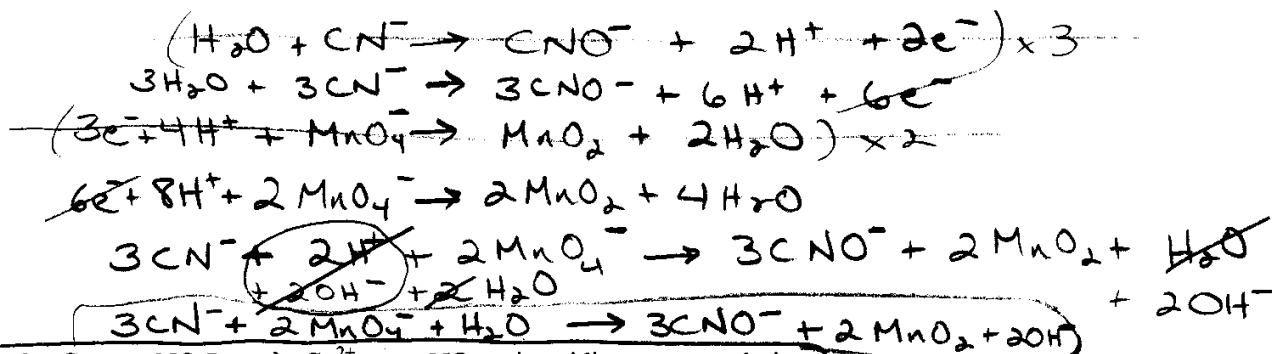 (H₂O + CN⁻ → CNO⁻ + 2H⁺ + 2e⁻) × 3
3H₂O + 3CN⁻ → 3CNO⁻ + 6H⁺ + 6e⁻
(3e⁻ + 4H⁺ + MnO₄⁻ → MnO₂ + 2H₂O) × 2
6e⁻ + 8H⁺ + 2MnO₄⁻ → 2MnO₂ + 4H₂O
3CN⁻ + 2H⁺ + 2MnO₄⁻ → 3CNO⁻ + 2MnO₂ + H₂O
+ 2OH⁻ + 2H₂O + 2OH⁻
3CN⁻ + 2MnO₄⁻ + H₂O → 3CNO⁻ + 2MnO₂ + 2OH⁻